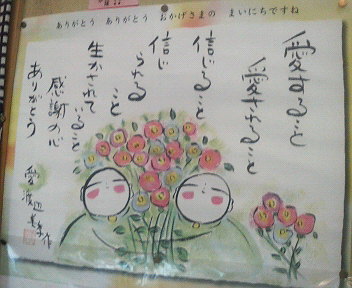 ありがとう ありがとう おかげさまの まいにちですね
愛すること
愛されること
信じること
信じ
られる
こと
生かされて
いる
こと
感謝の心
ありがとう